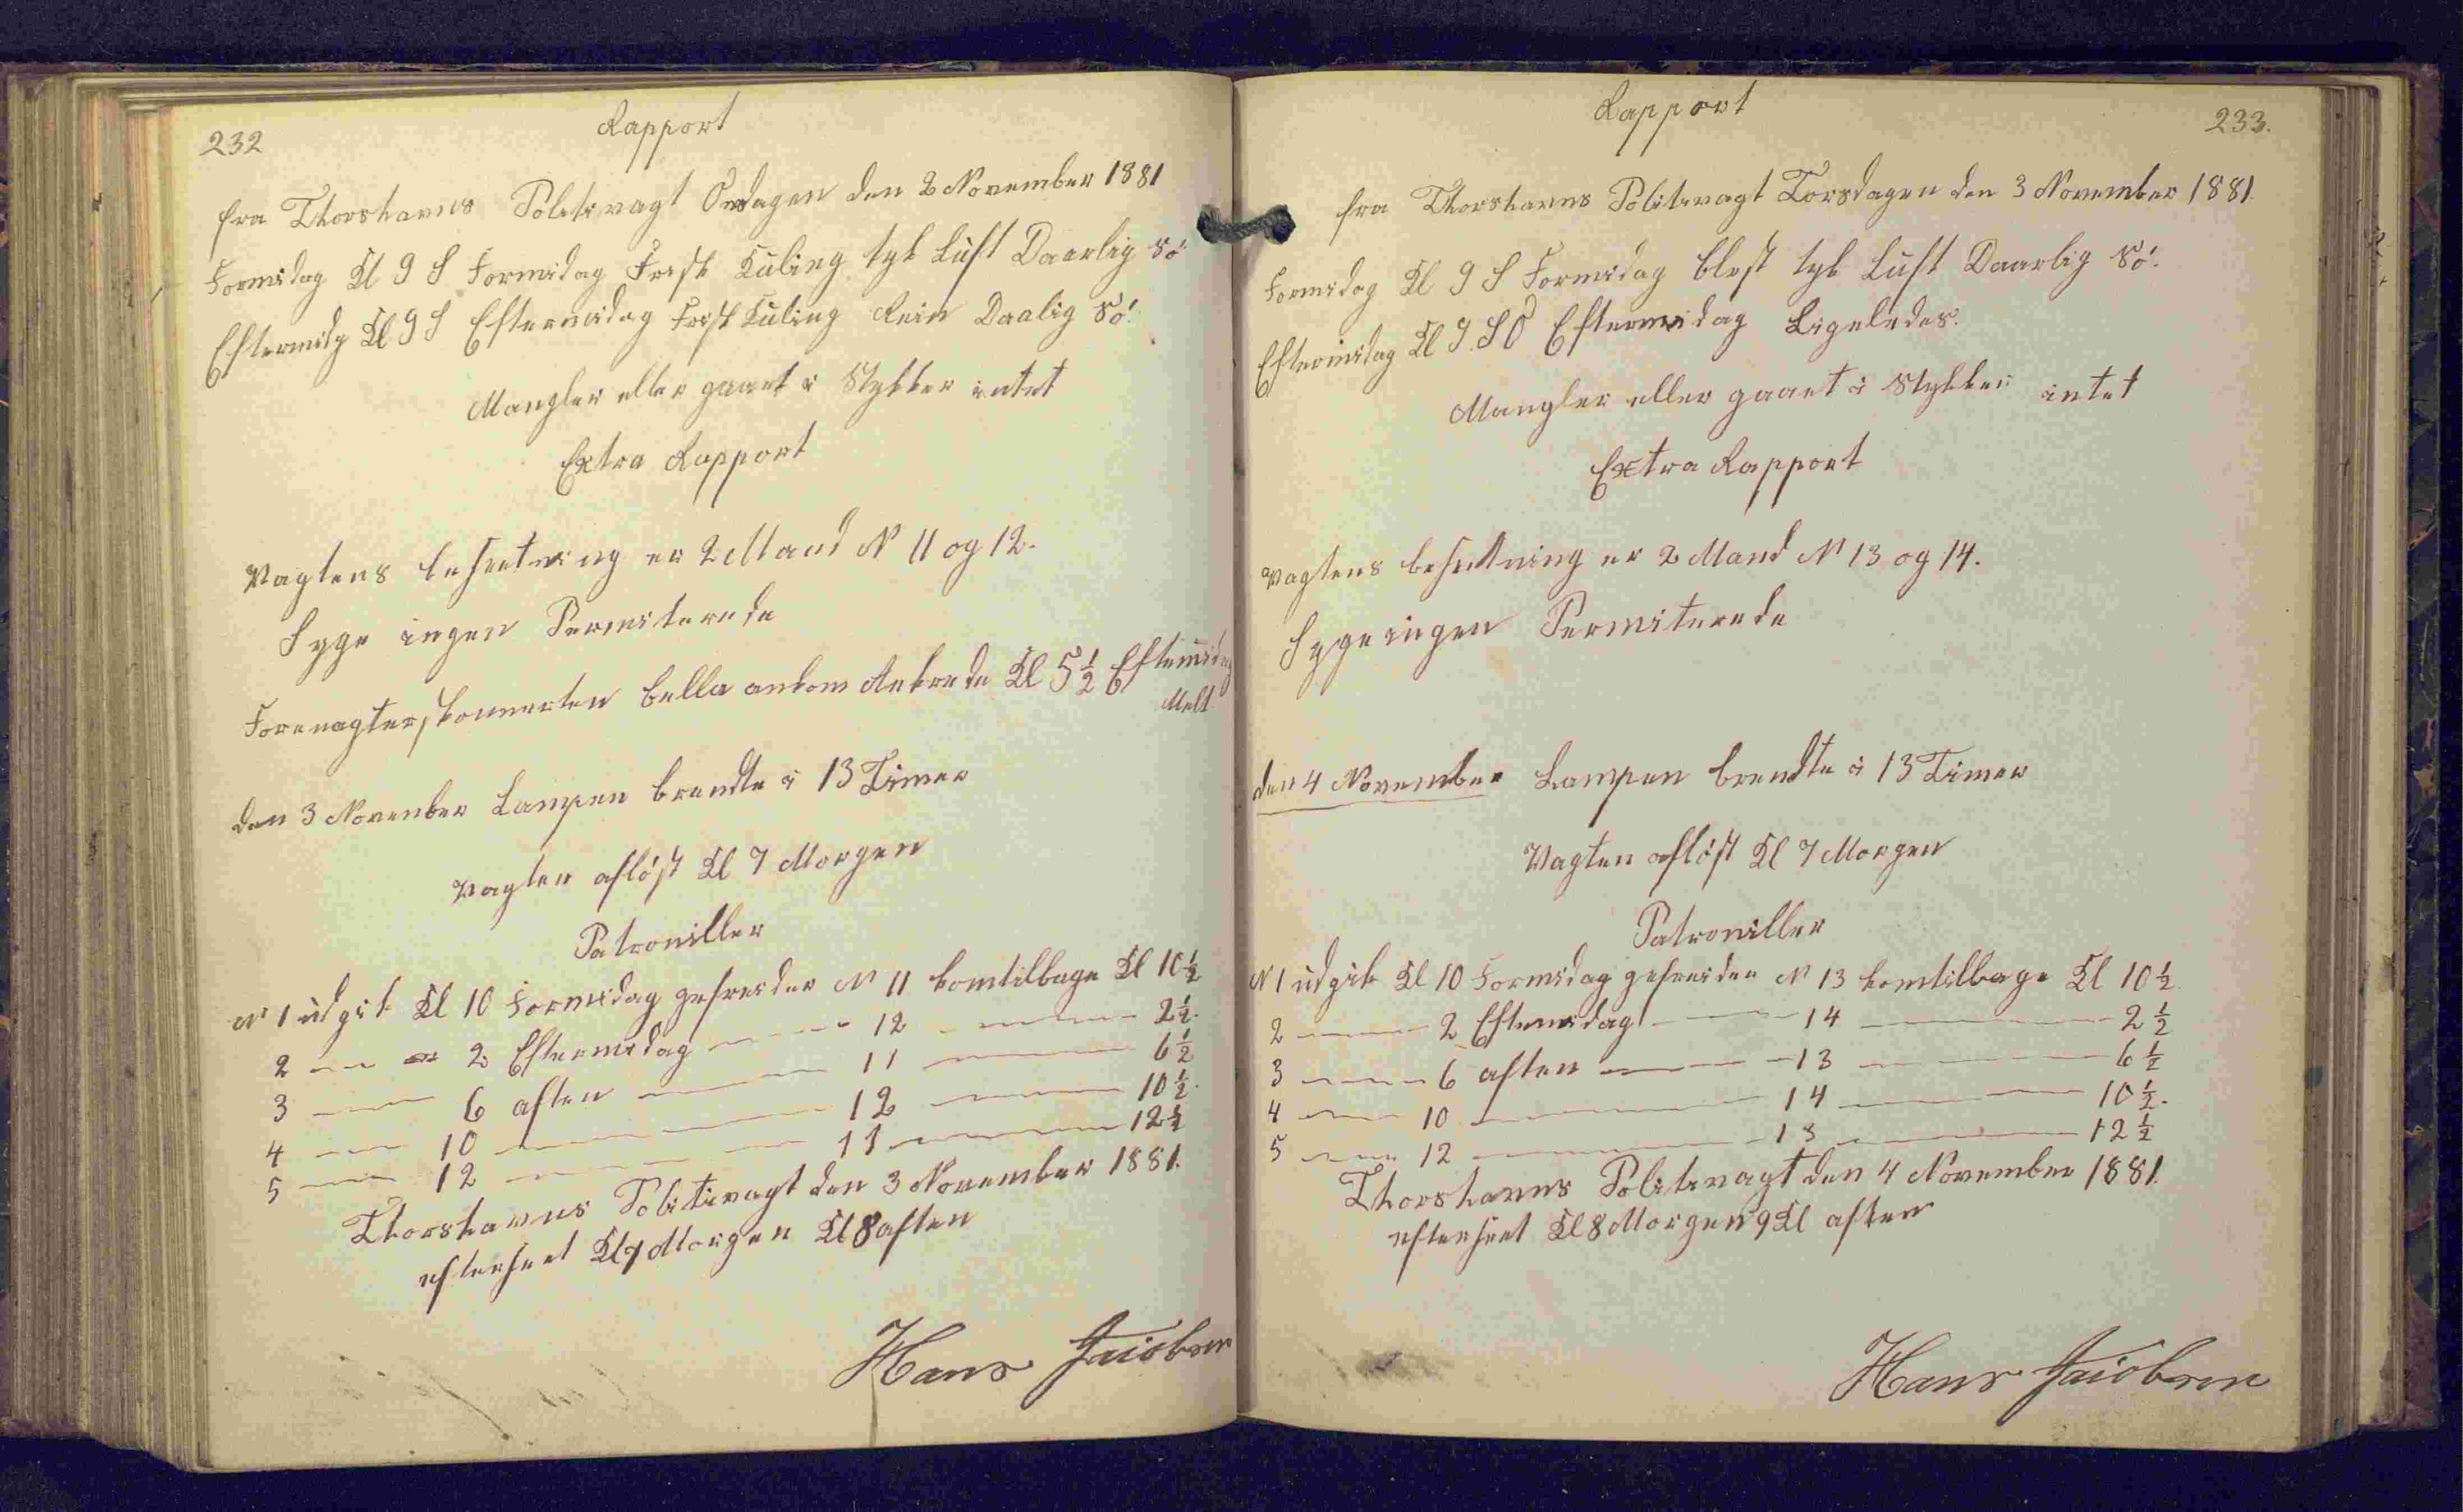 232
Rapport
fra Thorshavns Politivagt Onsdagen den 2 November 1881
Formidag Kl 9 S Formidag Frisk Kuling tyk Luft Daarlig Sö.
Eftermidg Kl 9 S Eftermidag Frisk Kuling Rein Daalig Sö.
Mangler eller gaaet i Stykker intet
Extra Rapport
Vagtens besætning er 2 Mand N 11 og 12.
Syge ingen Permiterede
Skonnerten Bella ankom Ankrede Kl 5 1/2 Eftermidag
Melt
den 3 November Lampen brendte i 13 Timer
Vagten aflöst Kl 7 Morgen
Patroniller
N 1 udgik Kl 10 Formidag gefreider N 11 komtilbage Kl 10 1/2
2 — — 2 Eftermidag — 12 — 2 1/2.
3 — 6 aften — 11 — 6 1/2
4 — 10 — 12 — 10 1/2.
5 — 12 — 11 — 12 1/2
Thorshavns Politivagt den 3 November 1881.
efterseet Kl 7 Morgen Kl 8 aften
Hans Jacobsen
Rapport
233.
fra Thorshavns Politivagt Torsdagen den 3 November 1881.
Formidag Kl 9 S Formidag blest tyk Luft Daarlig Sö.
Eftermidag Kl 9 SO Eftermidag Ligeledes.
Mangler eller gaaet i Stykker intet
Extra Rapport
Vagtens besetning er 2 Mand N 13 og 14.
Syge ingen Permiterede
den 4 November Lampen brendte i 13 Timer
Vagten aflöst Kl 7 Morgen
Patroniller
N 1 udgik Kl 10 Formidag gefreider N 13 komtilbage Kl 10 1/2.
2 — 2 Eftermidag — 14 — 2 1/2
3 — 6 aften — 13 — 6 1/2
4 — 10 — 14 — 10 1/2.
5 — 12 — 13 — 12 1/2
Thorshavns Politivagt den 4 November 1881.
efterseet Kl 8 Morgen 9 Kl aften
Hans Jacobsen